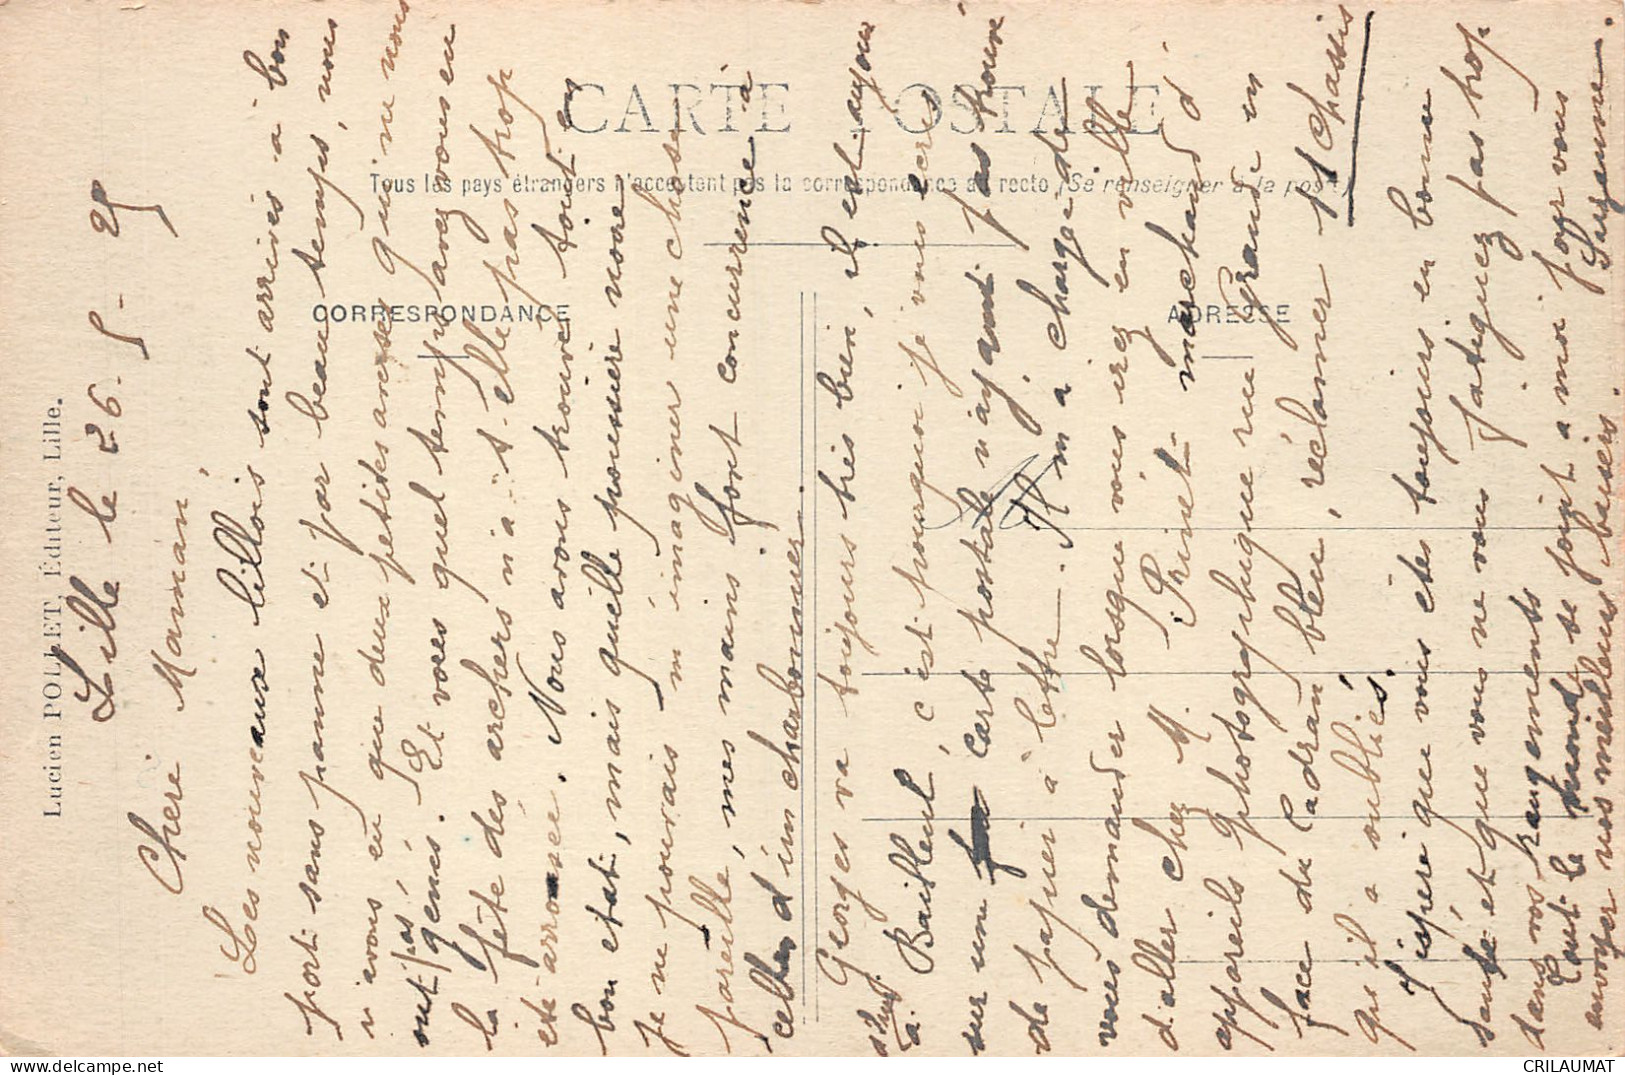 CARTE POSTALE
Tous les pays étrangers n'acceptent pas la correspondance au recto (Se renseigner à la poste)
CORRESPONDANCE
ADRESSE
Lucien POLLET, Éditeur, Lille.
Lille le 26-5-25
Chère Maman
Les nouveaux lillois sont arrivés à bon
port sans panne et par beau temps, nous
n'avons eu que deux petites averses qui ne nous
ont pas gênés. Et vous quel temps avez vous eu
la fête des archers n'a-t-elle pas trop
été arrosée. Nous avons trouvé tout en
bon état, mais quelle poussière noire
je ne pouvais m'imaginer une chose
pareille, mes mains font concurrence à
celles d'un charbonnier.
Georges va toujours très bien, il est aujour
d'hui à Bailleul, c'est pourquoi je vous écris
sur une carte postale n'ayant pas trouvé
de papier à lettre. Il m'a chargé de
vous demander lorsque vous irez en ville
d'aller chez M. Prinet marchand d'
appareils photographique rue Grande en
face du Cadran bleu, réclamer 11 chassis
qu'il a oubliés.
J'espère que vous êtes toujours en bonne
santé et que vous ne vous fatiguez pas trop
dans vos rangements
Tout le monde se joint à moi pour vous
envoyer nos meilleurs baisers. Suzanne.
CRILAUMAT